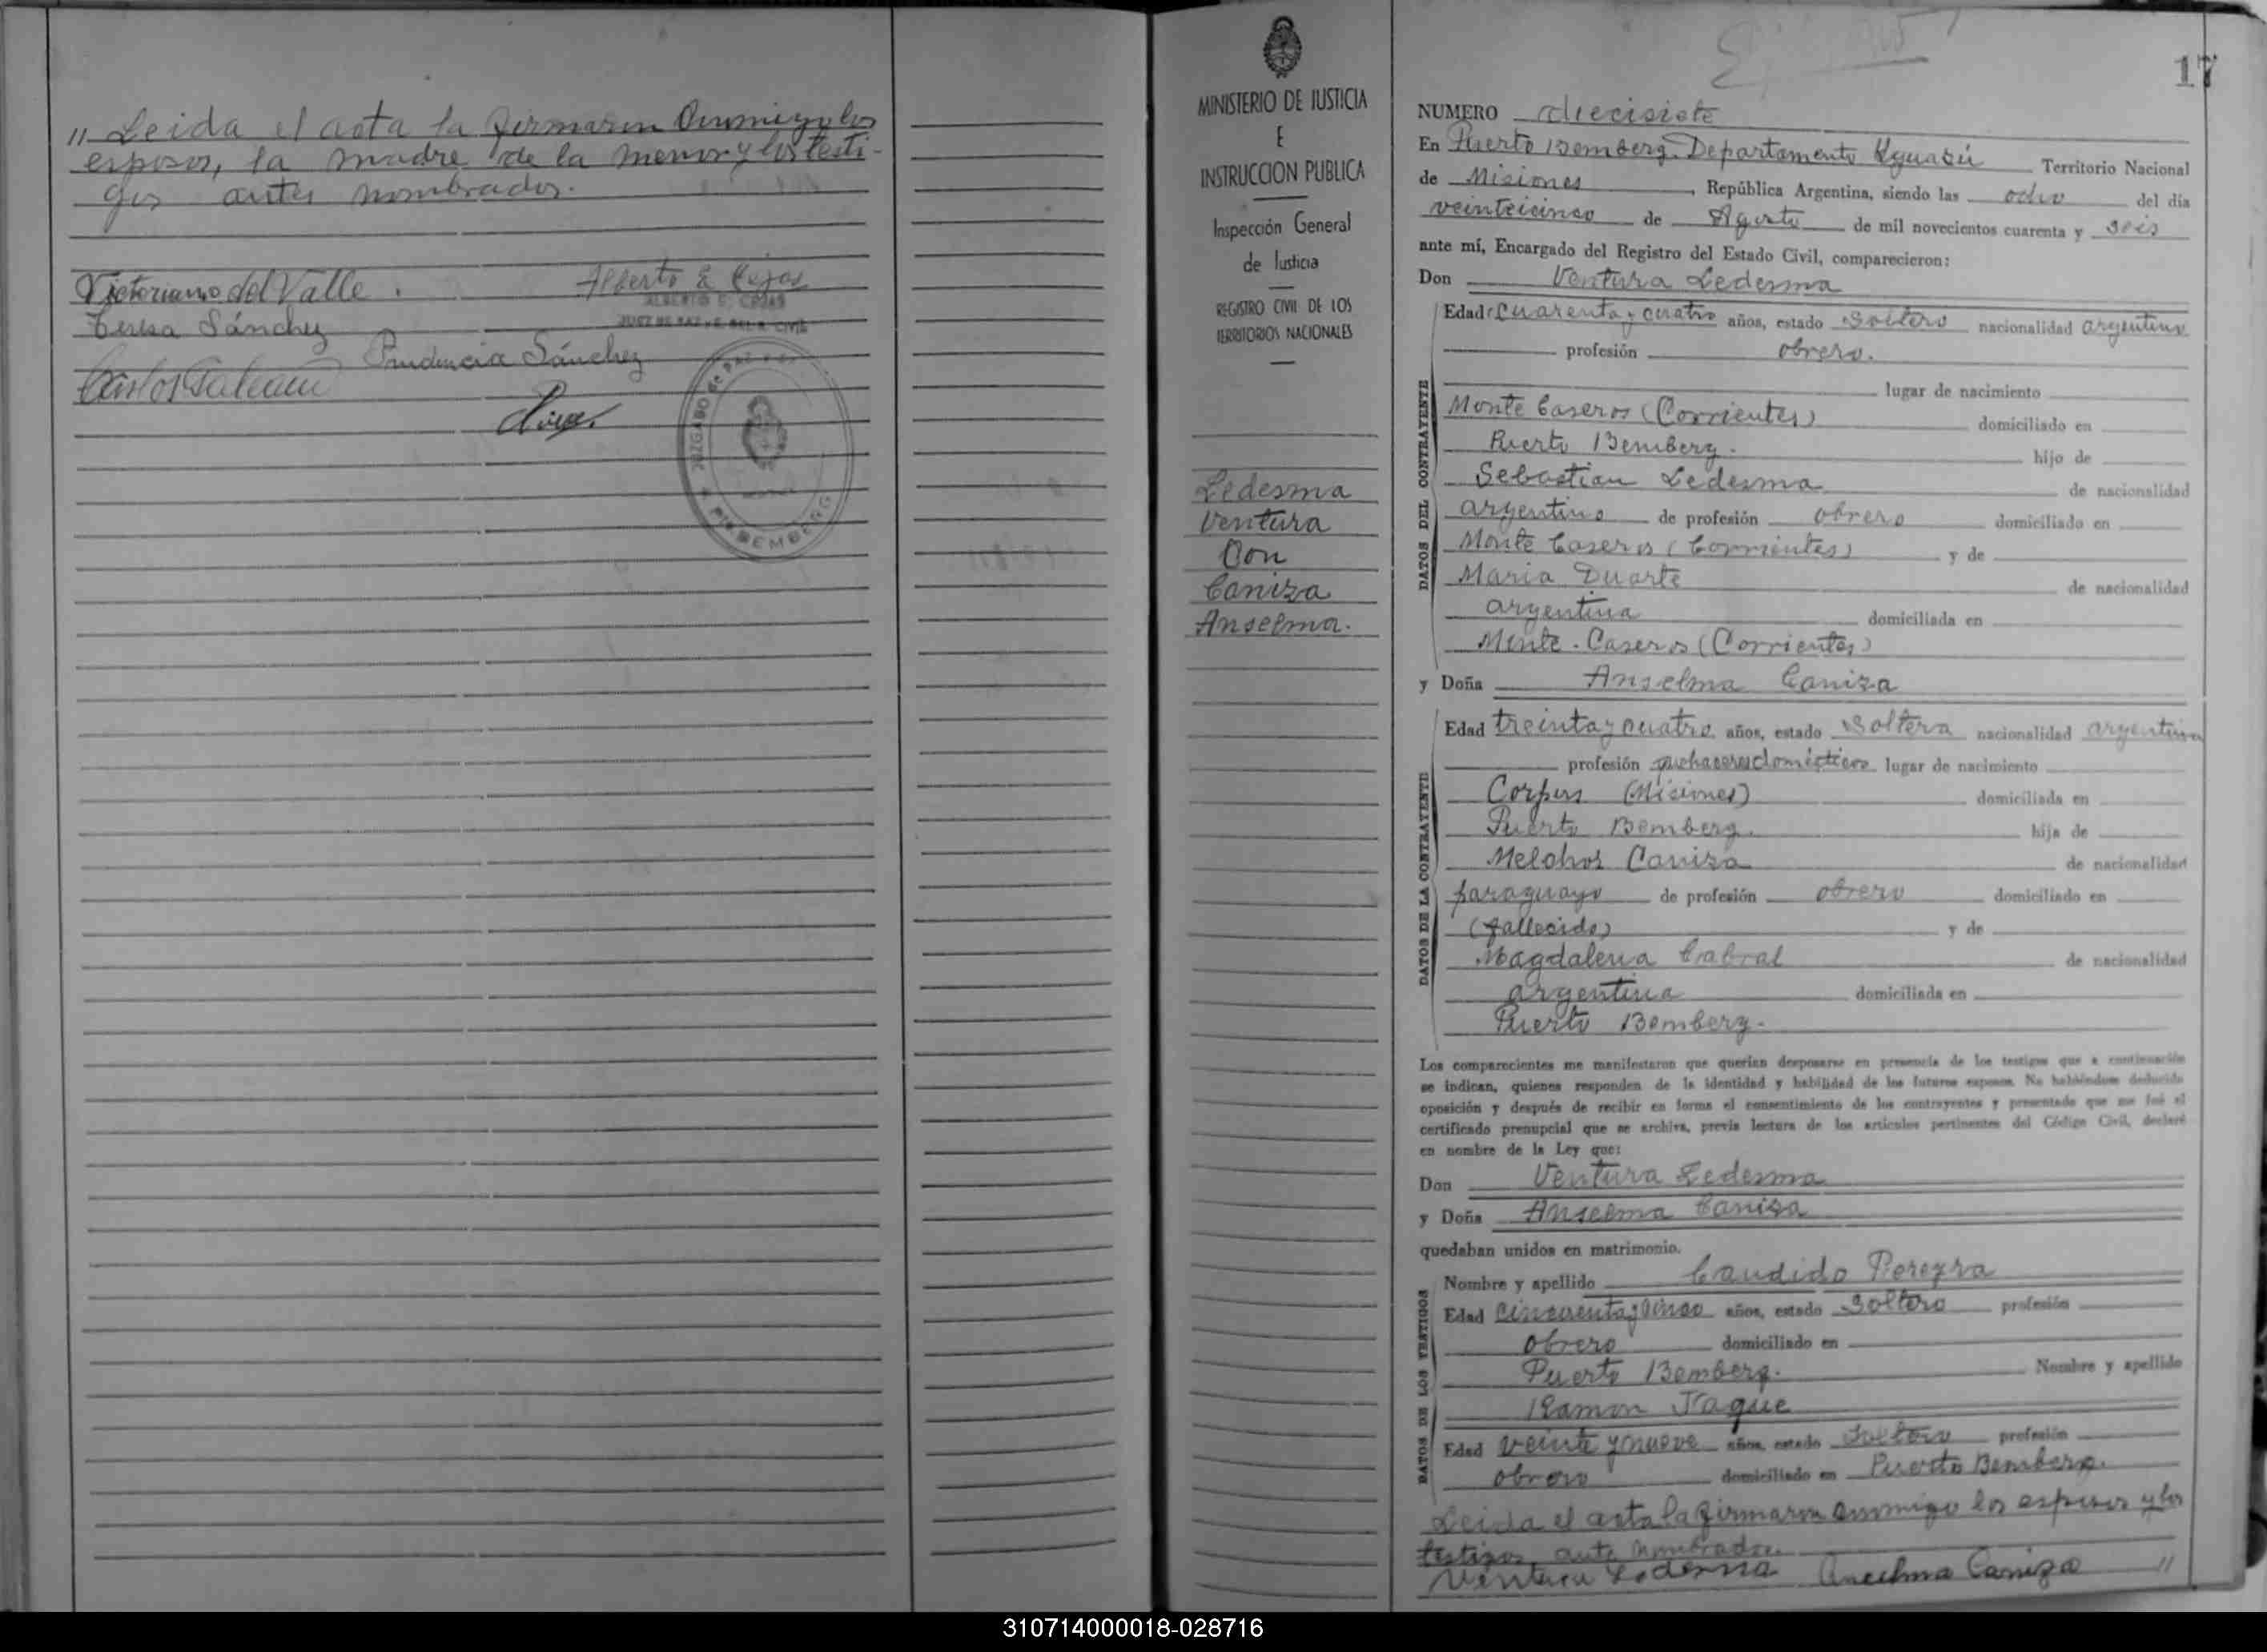 " Leida el acta la firmaron conmigo los
esposos, la madre de la menor y los testi-
gos antes nombrados.
Victoriano del Valle.
Alberto E. Cejas
ALBERTO E. CEJAS
JUEZ DE PAZ
Teresa Sánchez
Prudencia Sánchez
Carlos
JUZGADO de PAZ
PTO. BEMBERG
MINISTERIO DE JUSTICIA
E
INSTRUCCION PUBLICA
Inspección General
de Justicia
REGISTRO CIVIL DE LOS
TERRITORIOS NACIONALES
Ledesma
Ventura
Con
Caniza
Anselma.
17
NUMERO diecisiete
En Puerto Bemberg. Departamento Yguazú Territorio Nacional
de Misiones, República Argentina, siendo las ocho del día
veinticinco de Agosto de mil novecientos cuarenta y seis
ante mí, Encargado del Registro del Estado Civil, comparecieron:
Don Ventura Ledesma
Edad cuarenta y cuatro años, estado soltero nacionalidad argentino
profesión obrero.
lugar de nacimiento
Monte Caseros (Corrientes) domiciliado en
Puerto Bemberg. hijo de
Sebastian Ledesma de nacionalidad
argentino de profesión obrero domiciliado en
Monte Caseros (Corrientes) y de
Maria Duarte de nacionalidad
argentina domiciliada en
Monte. Caseros (Corrientes)
DATOS DEL CONTRAYENTE
y Doña Anselma Caniza
Edad treinta y cuatro años, estado soltera nacionalidad argentina
profesión quehaceres domésticos lugar de nacimiento
Corpus (Misiones) domiciliada en
Puerto Bemberg. hija de
Melchor Caniza de nacionalidad
paraguayo de profesión obrero domiciliado en
(fallecido) y de
Magdalena Cabral de nacionalidad
argentina domiciliada en
Puerto Bemberg.
DATOS DE LA CONTRAYENTE
Los comparecientes me manifestaron que querían desposarse en presencia de los testigos que a continuación
se indican, quienes responden de la identidad y habilidad de los futuros esposos. No habiéndose deducido
oposición y después de recibir en forma el consentimiento de los contrayentes y presentado que me fué el
certificado prenupcial que se archiva, previa lectura de los artículos pertinentes del Código Civil, declaré
en nombre de la Ley que:
Don Ventura Ledesma
y Doña Anselma Caniza
quedaban unidos en matrimonio.
Nombre y apellido Candido Pereyra
Edad cincuenta y cinco años, estado soltero profesión
obrero domiciliado en
Puerto Bemberg. Nombre y apellido
Ramon Jaque
Edad veinte y nueve años, estado soltero profesión
obrero domiciliado en Puerto Bemberg.
DATOS DE LOS TESTIGOS
Leida el acta la firmaron conmigo los esposos y los
testigos antes nombrados.
Ventura Ledesma Anselma Caniza "
310714000018-028716